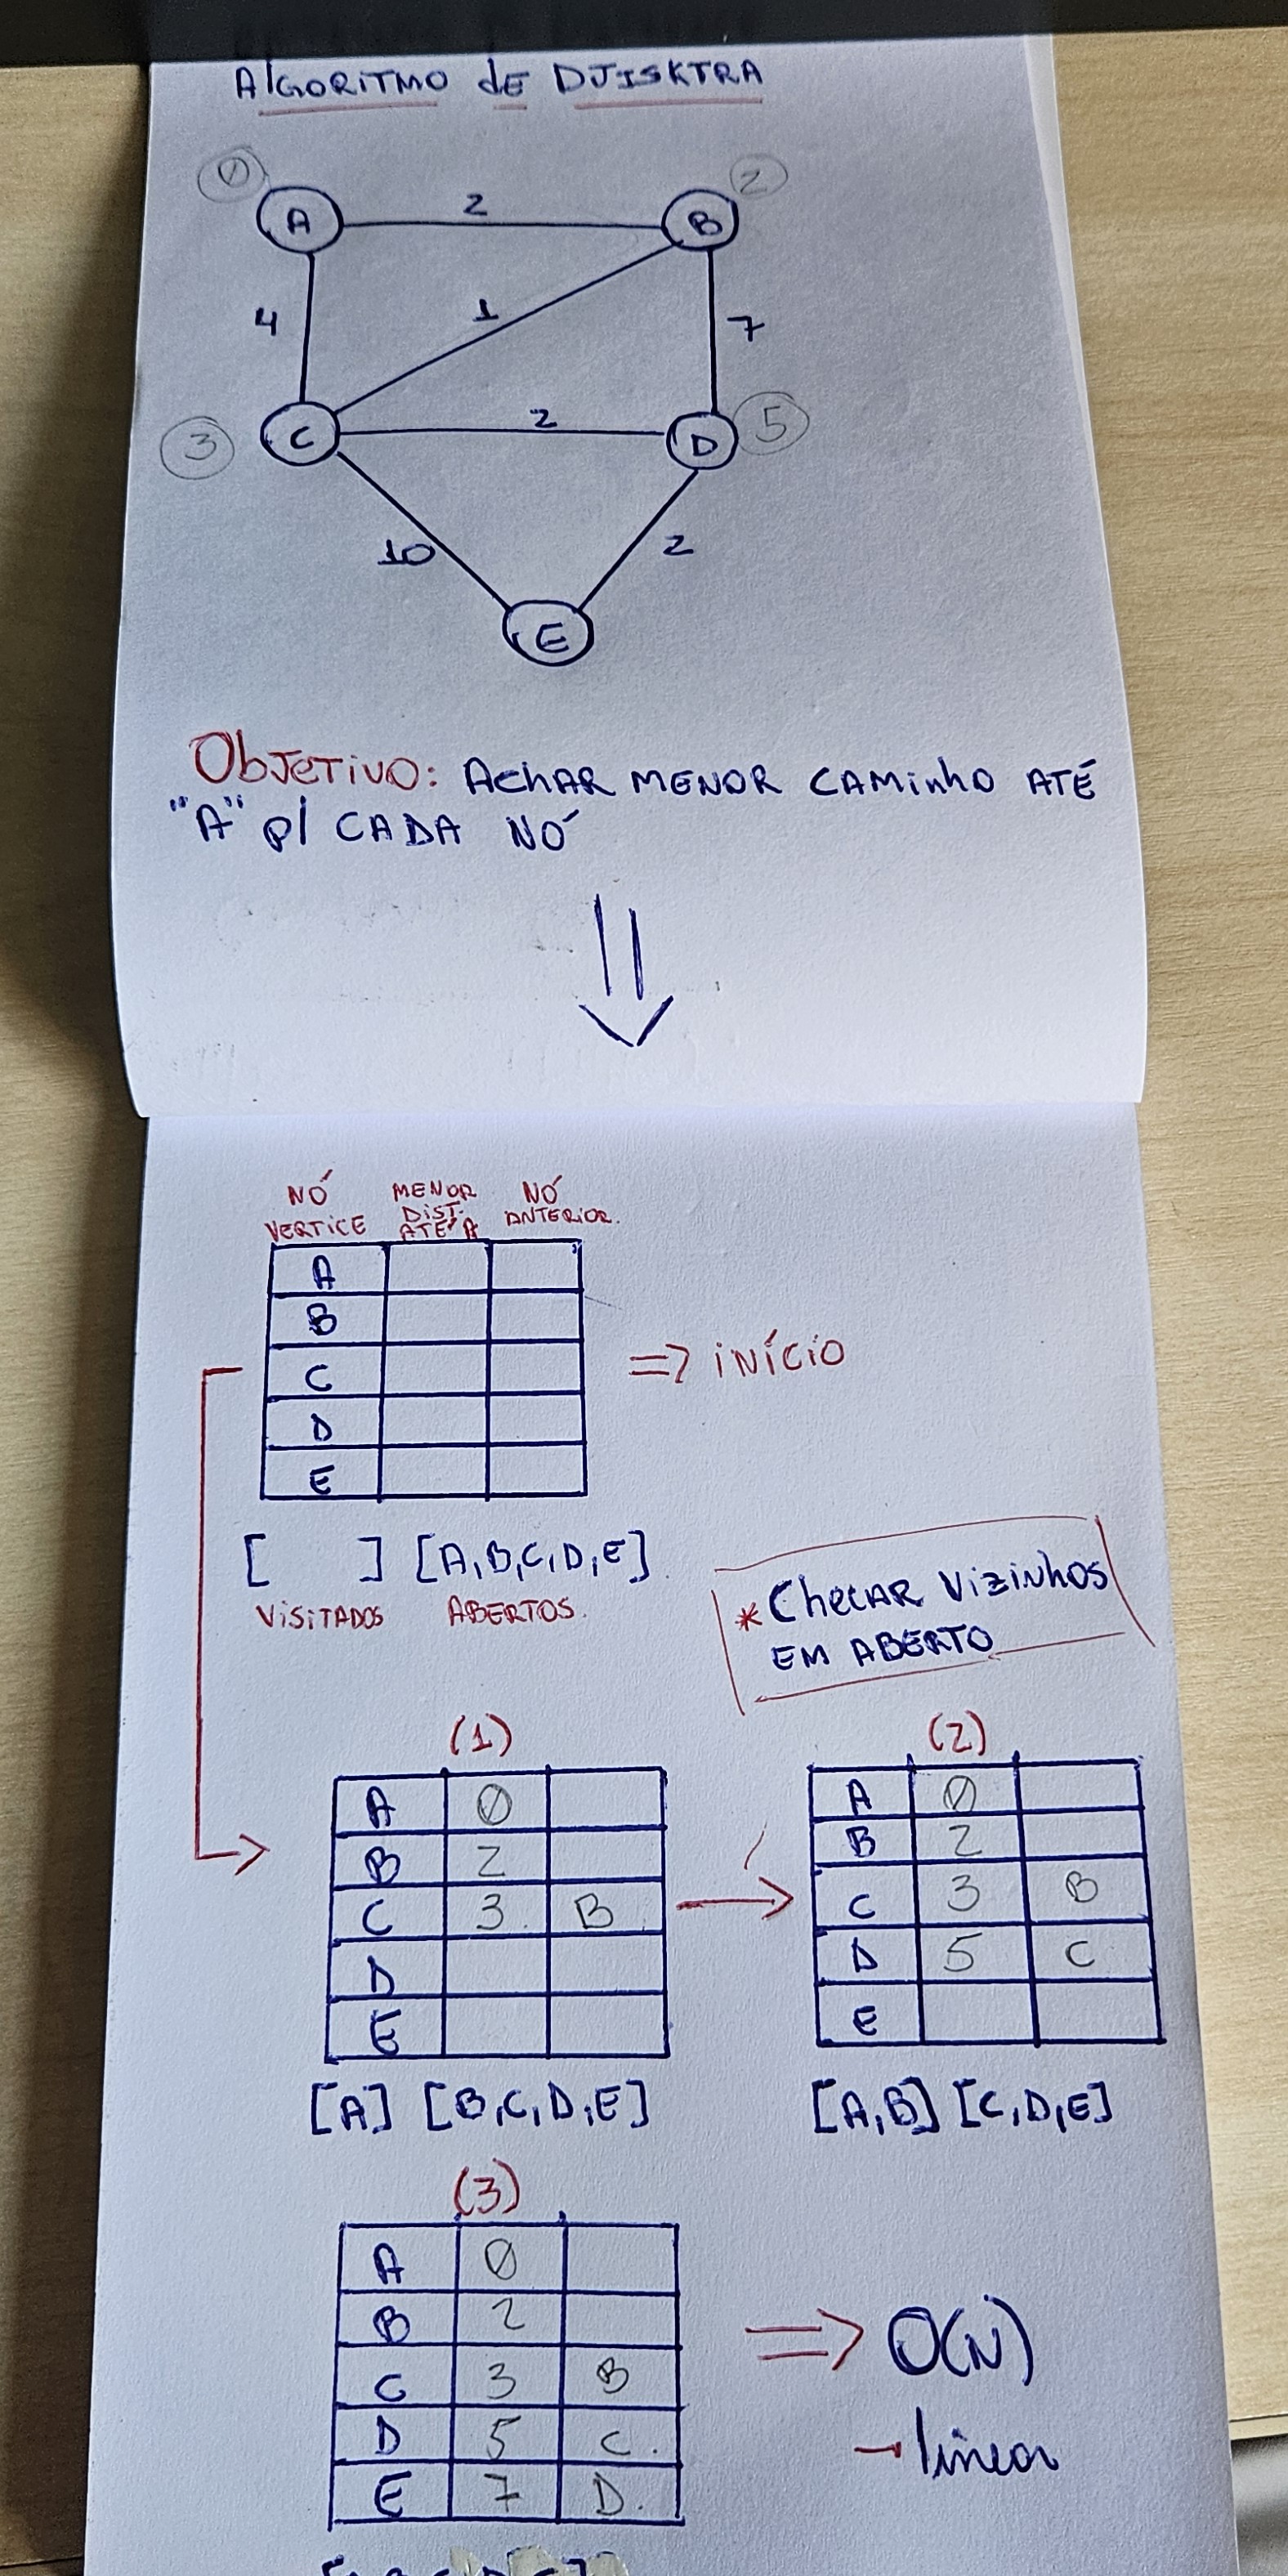 ALGORITMO dE DJISKTRA
0
2
A
2
B
4
1
7
3
C
2
D
5
10
2
E
ObJETiVO: AChAR MENOR CAMiNhO ATÉ
"A" p/ CADA NÓ
NÓ VERTiCE
MENOR DiST. ATÉ A
NÓ ANTERiOR.
A
B
C
D
E
=> iNÍCiO
[ ] [A,B,C,D,E]
ViSiTADOS ABERTOS.
* ChECAR VizinhOS
EM ABERTO
(1)
A 0
B 2
C 3 B
D
E
[A] [B,C,D,E]
(2)
A 0
B 2
C 3 B
D 5 C
E
[A,B] [C,D,E]
(3)
A 0
B 2
C 3 B
D 5 C.
E 7 D.
=> O(N)
→ linear